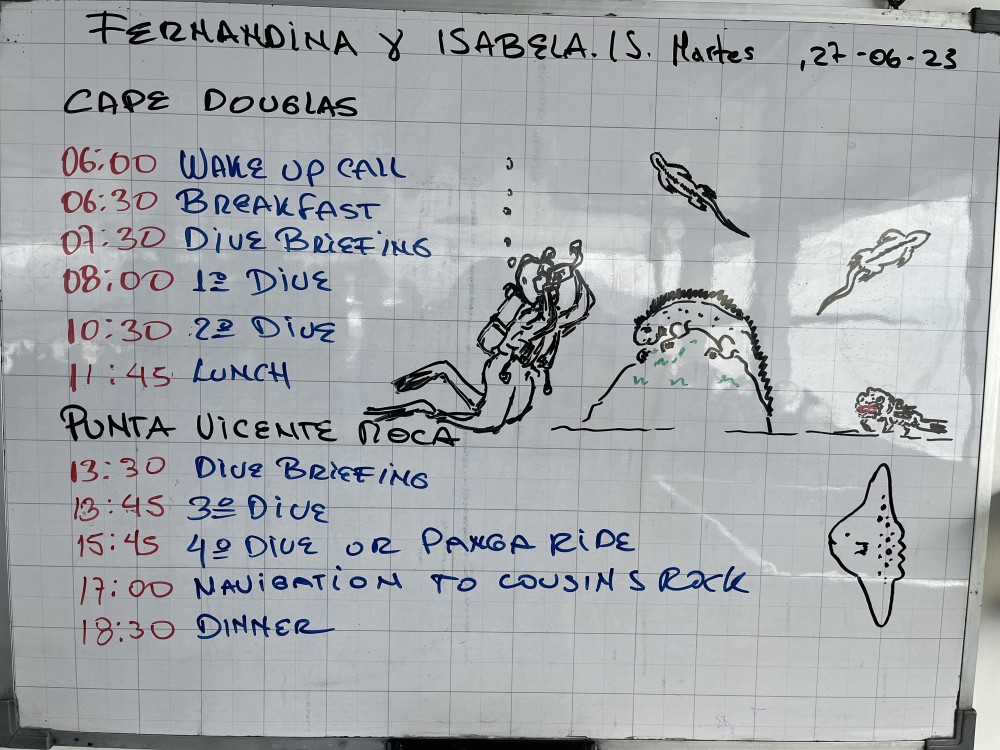 FERNANDINA Y ISABELA. IS. Martes, 27-06-23
CAPE DOUGLAS
06:00 WAKE UP CALL
06:30 BREAKFAST
07:30 DIVE BRIEFING
08:00 1º DIVE
10:30 2º DIVE
11:45 LUNCH
PUNTA VICENTE ROCA
13:30 DIVE BRIEFING
13:45 3º DIVE
15:45 4º DIVE OR PANGA RIDE
17:00 NAVIGATION TO COUSINS ROCK
18:30 DINNER